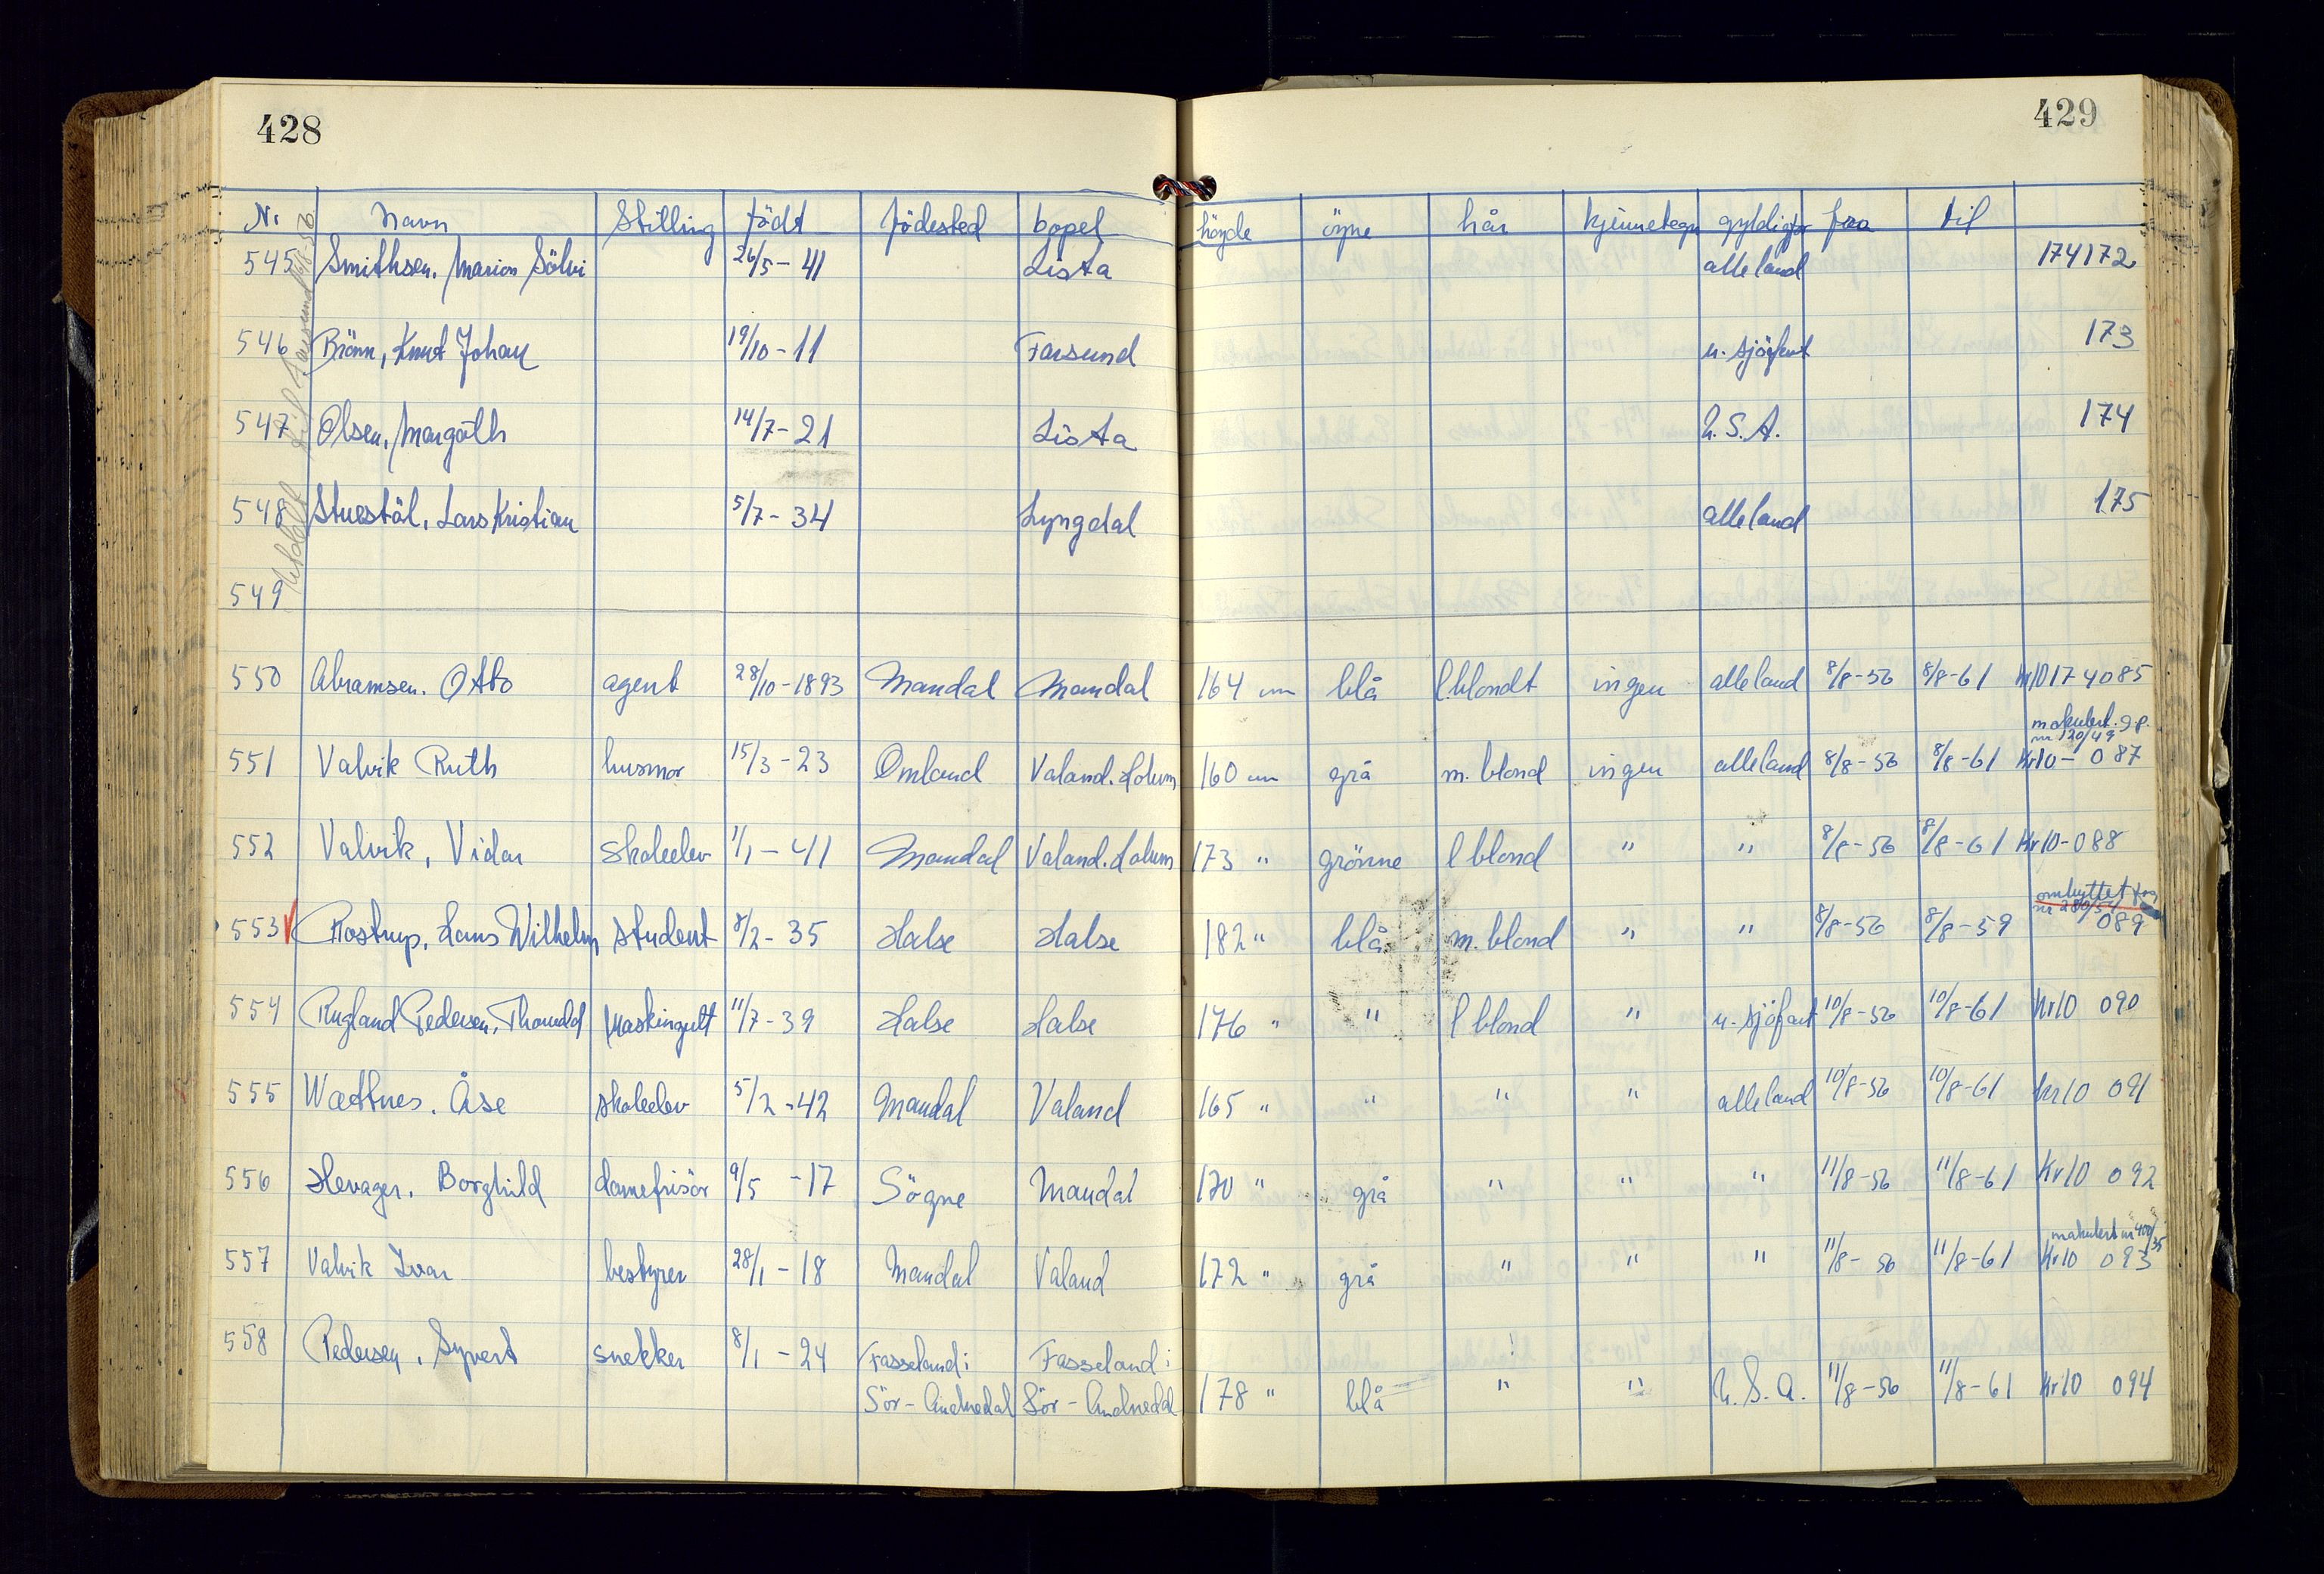 428
429
Nr Navn Stilling födt födested bopel höyde öyne hår kjennetegn gyldigfor fra til
545 Smithsen, Marion Sölvi 26/5-41 Lista alle land 174172
546 Brönn, Knut Johan 19/10-11 Farsund u. sjöfart 173
547 Olsen, Margoth 14/7-21 Lista U.S.A. 174
548 Stuestöl, Lars Kristian 5/7-34 Lyngdal alle land 175
549
550 Abramsen, Otto agent 28/10-1893 Mandal Mandal 164 cm blå l.blondt ingen alle land 8/8-56 8/8-61 kr10 174085
makulert. g.p.
nr 120/49
551 Valvik Ruth husmor 15/3-23 Omland Valand. Holum 160 cm grå m. blond ingen alle land 8/8-56 8/8-61 Kr10- 087
552 Valvik, Vidar skoleelev 1/1-41 Mandal Valand. Holum 173 " grönne l blond " " 8/8-56 8/8-61 Kr10-088
ombyttet
553 Rostrup, Hans Wilhelm student 8/2-35 Halse Halse 182 " blå m. blond " " 8/8-56 8/8-59 089
554 Rugland Pedersen, Maskingutt 11/7-39 Halse Halse 176 " " l blond " u. sjöfart 10/8-56 10/8-61 Kr10 090
555 Wattnes. Åse skoleelev 5/2-42 Mandal Valand 165 " " " " alle land 10/8-56 10/8-61 Kr10 091
556 Hevager. Borghild damefrisör 9/5-17 Sögne Mandal 170 " grå " " " 11/8-56 11/8-61 Kr10 092
makulert nr
557 Valvik Ivar bestyrer 28/1-18 Mandal Valand 172 " grå " " " 11/8-56 11/8-61 Kr10 093
558 Pedersen, Syvert snekker 8/1-24 Fasseland i Fasseland i
Sör-Audnedal Sör-Audnedal 178 " blå " " U.S.A. 11/8-56 11/8-61 Kr10 094